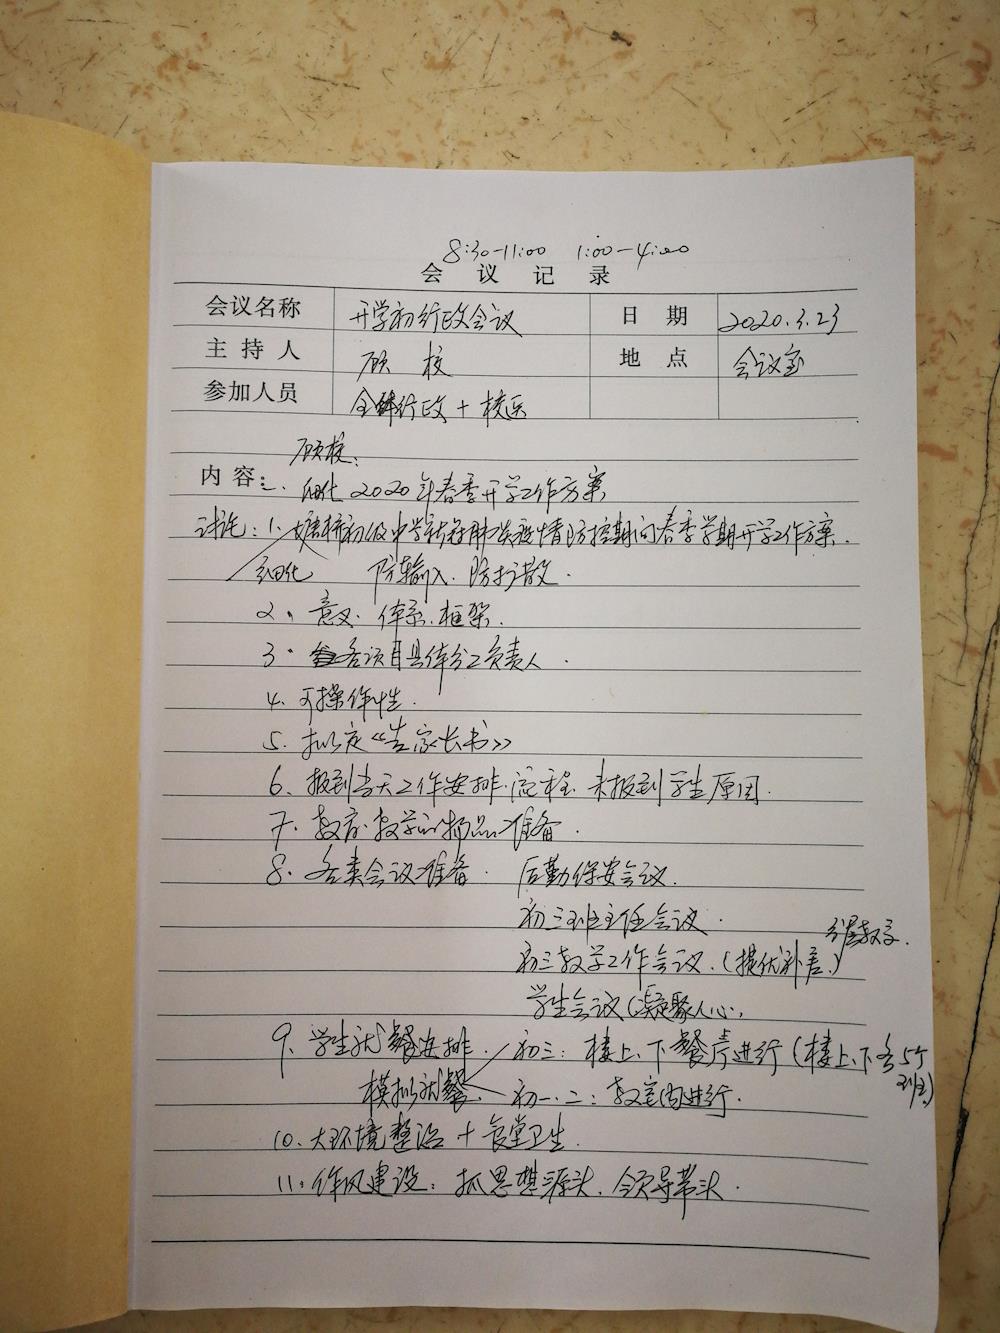 8:30-11:00 1:00-4:00
会议记录
会议名称 开学初行政会议 日期 2020.3.23
主持人 顾校 地点 会议室
参加人员 全体行政+校医
顾校:
内容: 细化2020年春季开学工作方案
讨论:1、初级中学新冠肺炎疫情防控期间春季学期开学工作方案.
细化 防输入、防扩散.
2、意义、体系、框架.
3. 各项目具体分工负责人.
4. 可操作性.
5. 拟定《告家长书》
6、报到当天工作安排、流程、未报到学生原因.
7. 教育、教学的物品准备.
8、各类会议准备. 后勤保安会议.
初三班主任会议.
分层教学.
初三教学工作会议.(提优补差.)
学生会议(凝聚人心.
9、学生就餐安排. 初三:楼上、下餐厅进行(楼上、下各5个
班)
模拟就餐. 初一、二:教室内进行.
10、大环境整治+食堂卫生.
11、作风建设:抓思想源头、领导带头.